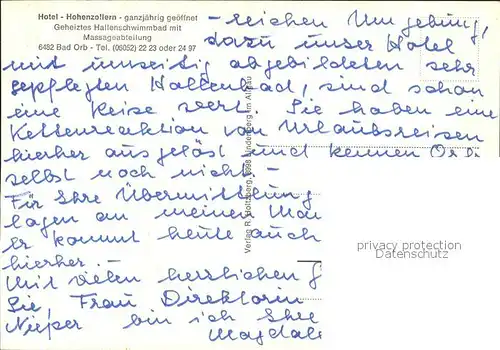 Hotel - Hohenzollern - ganzjährig geöffnet
Geheiztes Hallenschwimmbad mit
Massageabteilung
6482 Bad Orb - Tel. (06052) 22 23 oder 24 97
- reichen Umgebung,
dazu unser Hotel
mit umseitig abgebildeten sehr
gepflegten Hallenbad, sind schon
eine Reise wert. Sie haben eine
Kettenreaktion von Urlaubsreisen
hierher ausgelöst und kennen Or
selbst noch nicht. -
Für Ihre Übermittlung
lagen an meinen Man
Er kommt heute auch
hierher. -
Mit vielen herzlichen G
Sie, Frau Direktorin
Nieper bin ich Ihre
Magdal
Verlag R. Holtzberg, 8998 Lindenberg im Allgäu
privacy protection
Datenschutz